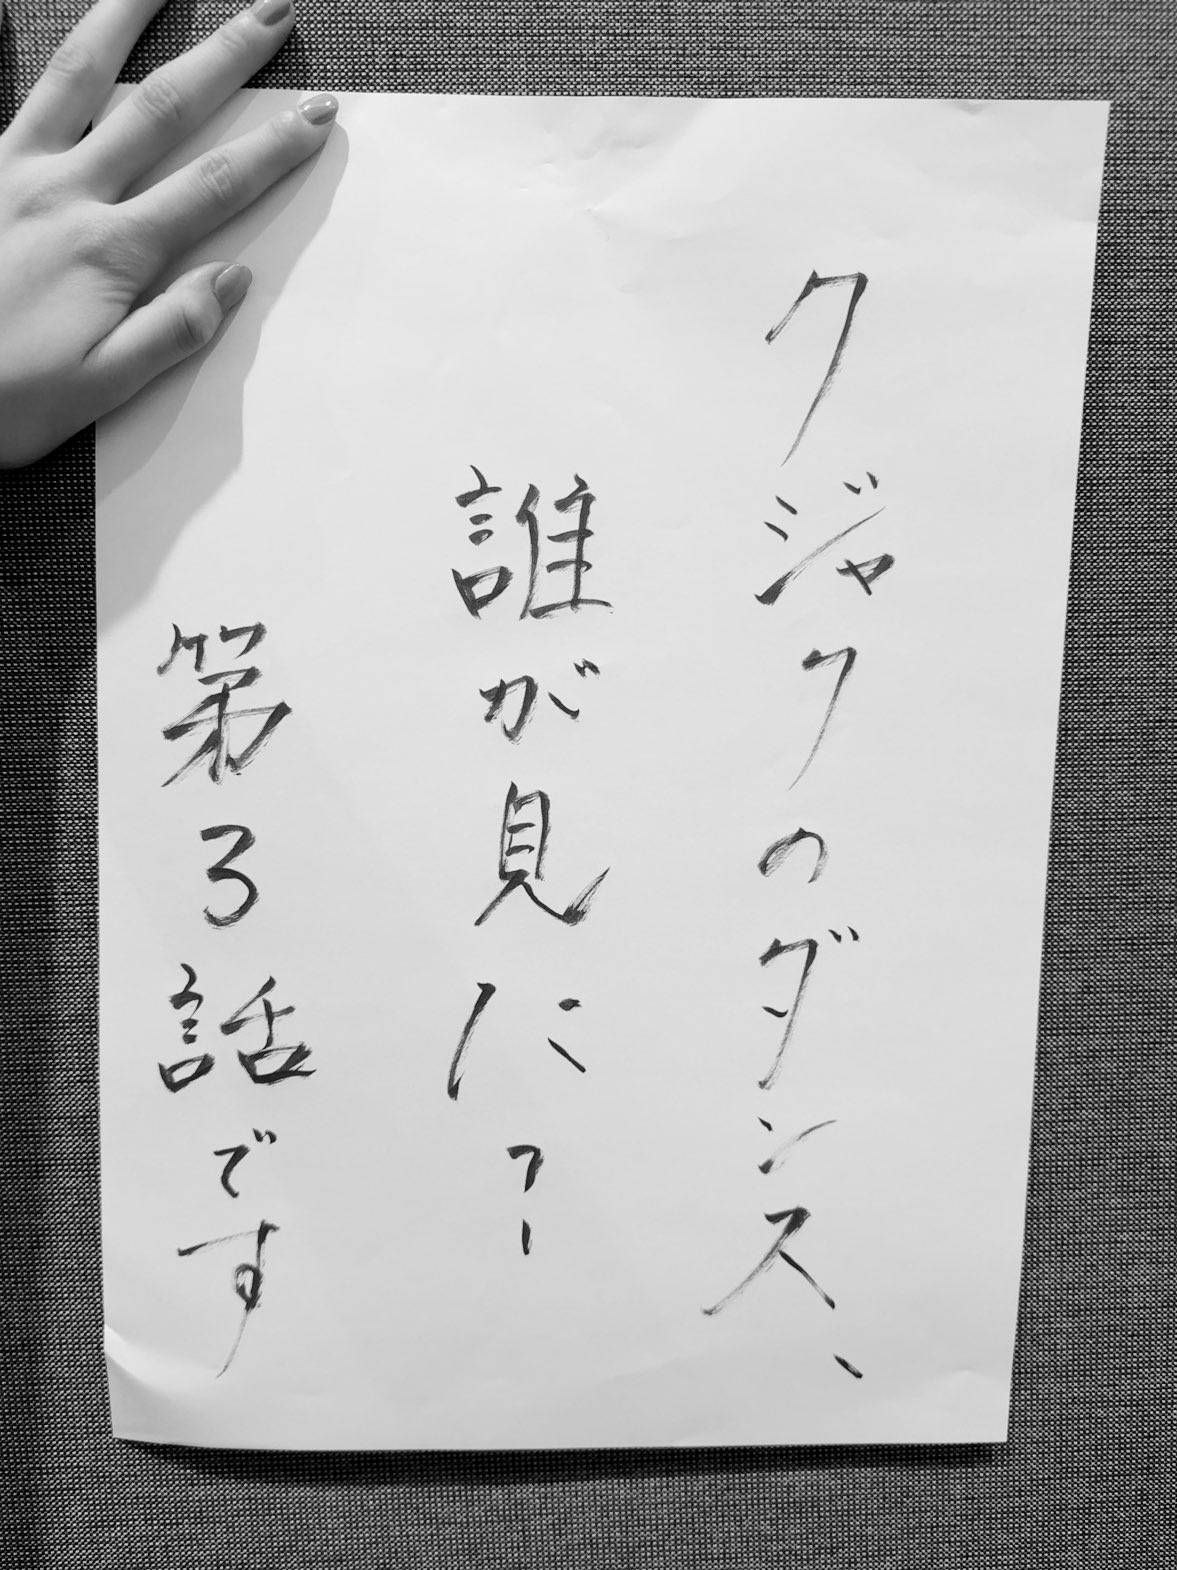 クジャクのダンス、
誰が見た?
第3話です